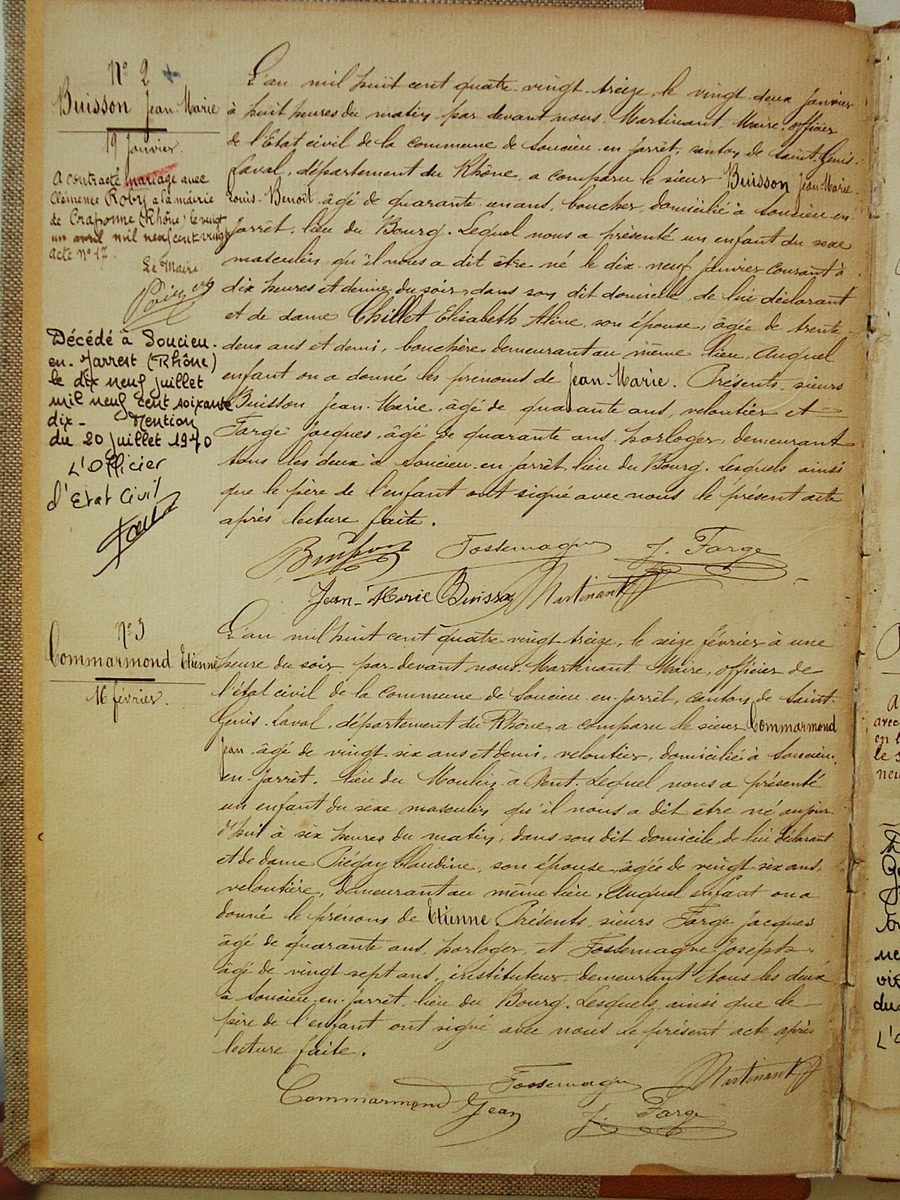 N° 2
Buisson Jean-Marie
19 Janvier.
A contracté mariage avec
Clémence Roby à la mairie
de Craponne (Rhône) le vingt
un avril mil neuf cent vingt
acte n° 17.
Le Maire
Décédé à Soucieu-
en-Jarrest (Rhône)
le dix neuf juillet
mil neuf cent soixante
dix - Mention
du 20 juillet 1970
L'Officier
d'Etat Civil
L'an mil huit cent quatre vingt treize, le vingt deux Janvier
à huit heures du matin, par devant nous, Martinant, Maire, officier
de l'Etat civil de la commune de Soucieu en jarrêt, canton de Saint-Genis-
Laval, département du Rhône, a comparu le sieur Buisson Jean-Marie
Louis-Benoît, âgé de quarante un ans, boucher, domicilié à Soucieu en
jarrêt, lieu du Bourg. Lequel nous a présenté un enfant du sexe
masculin, qu'il nous a dit être né le dix-neuf janvier courant à
dix heures et demie du soir, dans son dit domicile, de lui déclarant
et de dame Chillet Elisabeth Aline, son épouse, âgée de trente
deux ans et demi, bouchère, demeurant au même lieu. Auquel
enfant on a donné les prénoms de Jean-Marie. Présents, sieurs
Buisson Jean-Marie, âgé de quarante ans, veloutier et
Farge jacques, âgé de quarante ans, horloger, demeurant
tous les deux à Soucieu en jarrêt, lieu du Bourg. Lesquels ainsi
que le père de l'enfant ont signé avec nous le présent acte
après lecture faite.
Buisson Fossemagne J. Farge
Jean-Marie Buisson Martinant
N° 3
Commarmond Etienne
16 février.
L'an mil huit cent quatre-vingt treize, le seize février à une
heure du soir, par devant nous, Martinant, Maire, officier de
l'état civil de la commune de Soucieu-en-jarrêt, canton de Saint-
Genis-Laval, département du Rhône, a comparu le sieur Commarmond
Jean, âgé de vingt-six ans et demi, veloutier, domicilié à Soucieu-
en-jarrêt, lieu du Moulin à Vent. Lequel nous a présenté
un enfant du sexe masculin, qu'il nous a dit être né aujour-
d'hui à six heures du matin, dans son dit domicile, de lui déclarant
et de dame Claudine, son épouse, âgée de vingt six ans,
veloutière, demeurant au même lieu, Auquel enfant on a
donné le prénom de Etienne Présents, sieurs Farge Jacques
âgé de quarante ans, horloger, et Fossemagne Joseph,
âgé de vingt sept ans, instituteur, demeurant tous les deux
à Soucieu-en-jarrêt, lieu du Bourg. Lesquels, ainsi que le
père de l'enfant ont signé avec nous le présent acte après
lecture faite.
Commarmond Jean Fossemagne Martinant
J. Farge